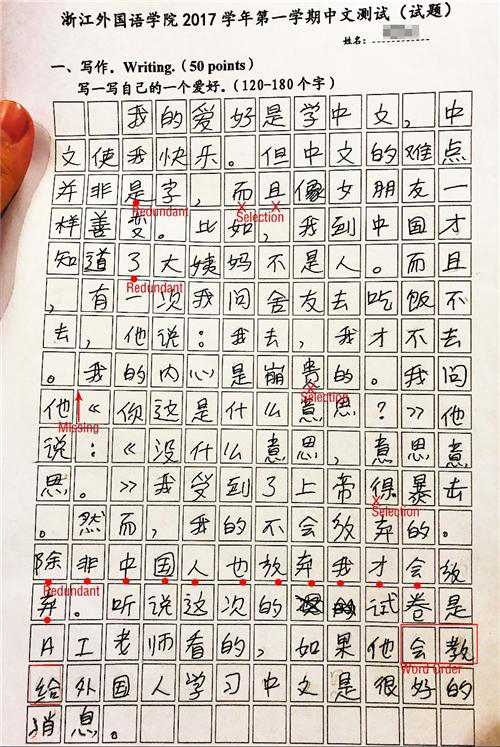 浙江外国语学院 2017 学年第一学期中文测试（试题）
姓名：
一、写作．Writing.（50 points）
写一写自己的一个爱好．（120-180 个字）
我的爱好是学中文，中
文使我快乐。但中文的难点
并非是字，而且像女朋友一
Redundant Selection
样善变。比如，我到中国才
知道了大姨妈不是人。而且
Redundant
，有一次我问舍友去吃饭不
去，他说：我去，我才不去
。我的内心是崩贵的。我问
Selection
他《你这是什么意思？》他
Missing
说：《没什么意思，意思意
思。》我受到了上帝俱暴去
Selection
。然而，我的不会放弃的。
除非中国人也放弃我才会放
Redundant
弃。听说这次的试卷是
AI老师看的，如果他会教
Word Order
给外国人学习中文是很好的
消息。